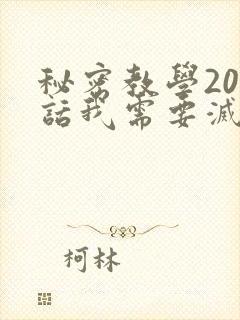 秘密教學20
話我需要滅
柯林